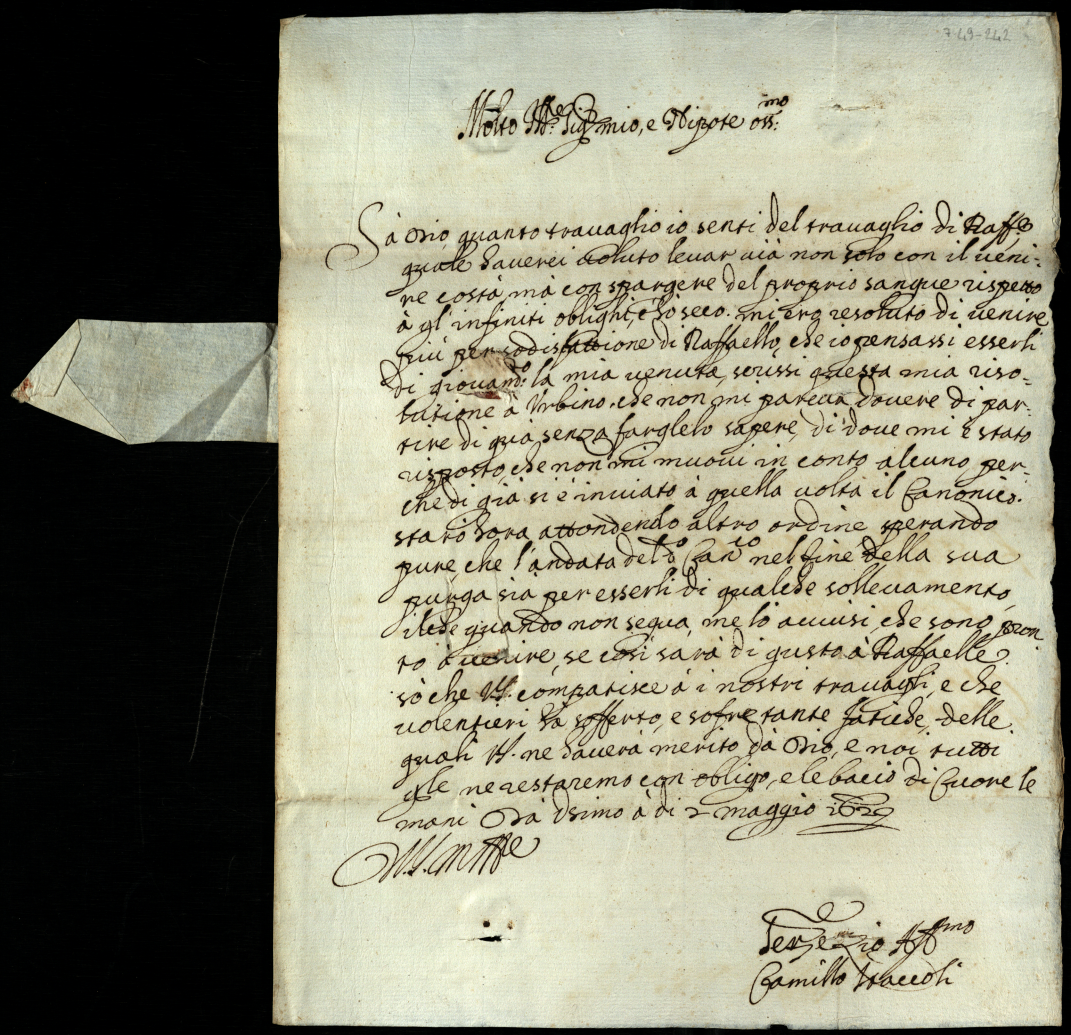 749-242
Molto Ill.re Sig.r mio, e Nipote oss.mo
Sà Dio quanto travaglio io senti del travaglio di Raff.o
quale haverei voluto levar via non solo con il veni-
re costà, mà con spargere del proprio sangue rispetto
à gl'infiniti oblighi, c'hò seco. mi ero resoluto di venire
più per sodisfattione di Raffaello, che io pensassi esserli
di giovam.to la mia venuta, scrissi questa mia riso-
lutione à Urbino. che non mi pareva dovere di par-
tire di quà senza farglelo sapere, di dove mi è stato
risposto, che non mi muovi in conto alcuno per-
che di già si è inviato à quella volta il Canonico.
starò hora attendendo altro ordine sperando
pure che l'andata del d.o Can.co nel fine della sua
purga sia per esserli di qualche sollevamento,
ilche quando non segua, me lo avvisi, che sono pron
to à venire, se così sarà di gusto à Raffaelle.
sò che V.S. compatisce à i nostri travagli, e che
volentieri hà sofferto, e sofre tante fatiche, delle
quali V.S. ne haverà merito dà Dio, e noi tutti
gle ne restaremo con obligo, e le bacio di Cuore le
mani Dà Osimo à di 2 maggio 1629
Di V.S. m. Ill.re
Ser.re e Zio Aff.mo
Camillo Iraccoli